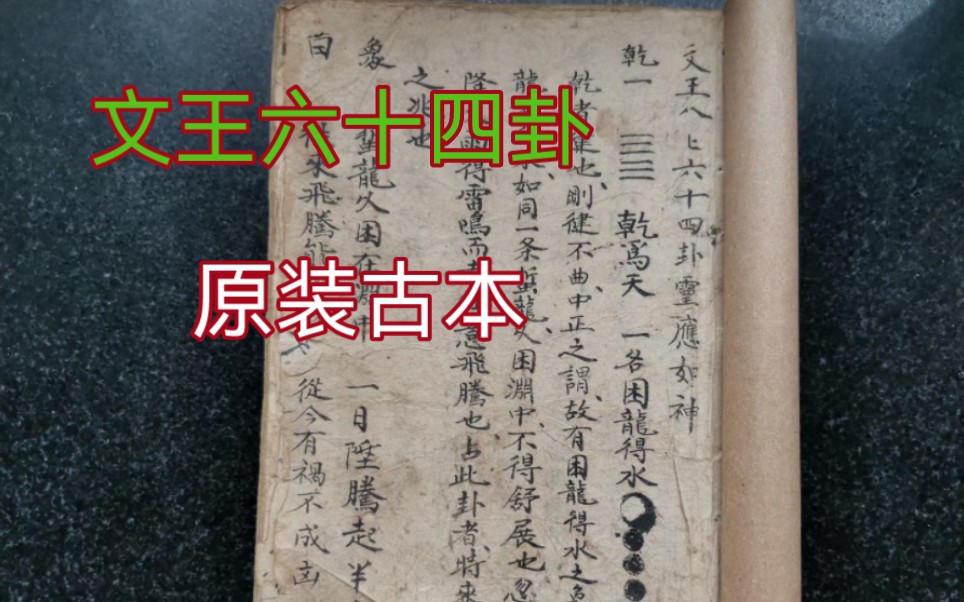 文王六十四卦
原装古本
文王八卜六十四卦靈應如神
乾一 乾爲天 一名困龍得水
乾者健也剛健不曲中正之謂故有困龍得水之
龍 如同一条蜇龍久困淵中不得舒展也忽
降 得雷鳴而 意飛騰也占此卦者将來
之兆也
象 龍久困在淵中 一日陞騰起半
曰 來飛騰能 從今有禍不成凶